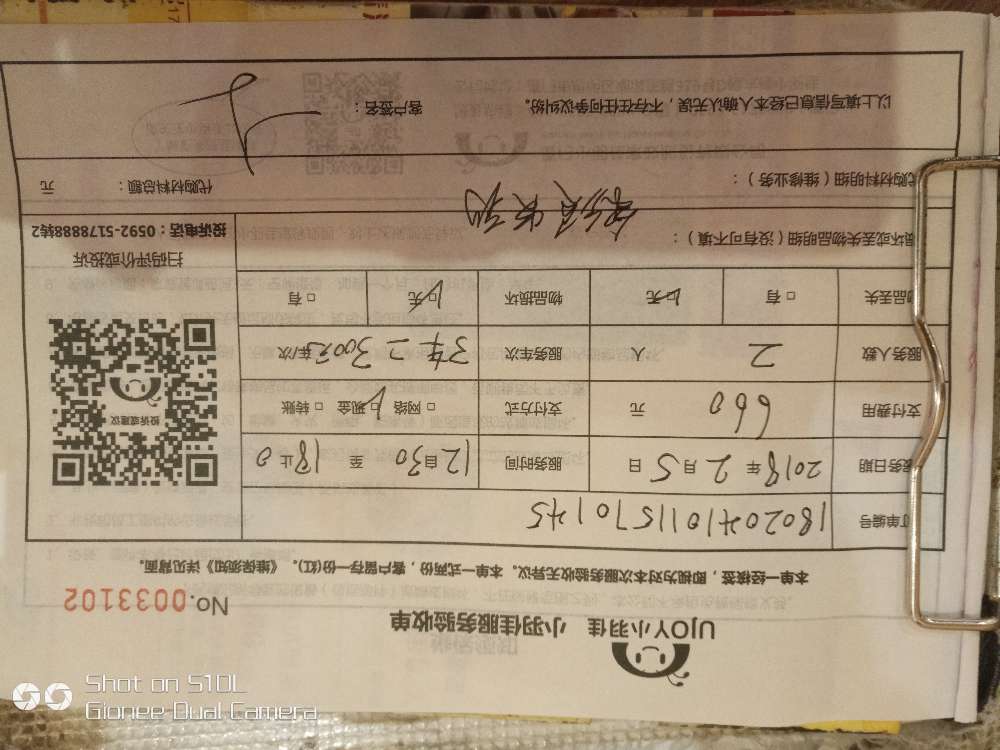 UJOY小羽佳 小羽佳服务验收单
No.0033102
本单一经核签，即视为对本次服务验收无异议。本单一式两份，客户留存一份(红)。《维保须知》详见背面。
订单编号 1802041011570145
服务日期 2018年2月5日 服务时间 12时30至18止0
支付费用 660 元 支付方式 □网络 □现金 □转账
服务人数 2 人 服务车次 车/次
物品丢失 □有 □无 物品损坏 □无 □有
损坏或丢失物品明细（没有可不填）：
代购材料明细（维修业务）： 代购材料总额： 元
以上填写信息已经本人确认无误，不存在任何争议纠纷。 客户签名：
投诉或建议
扫码评价或投诉
投诉电话：0592-5178888转2
Shot on S10L
Gionee Dual Camera